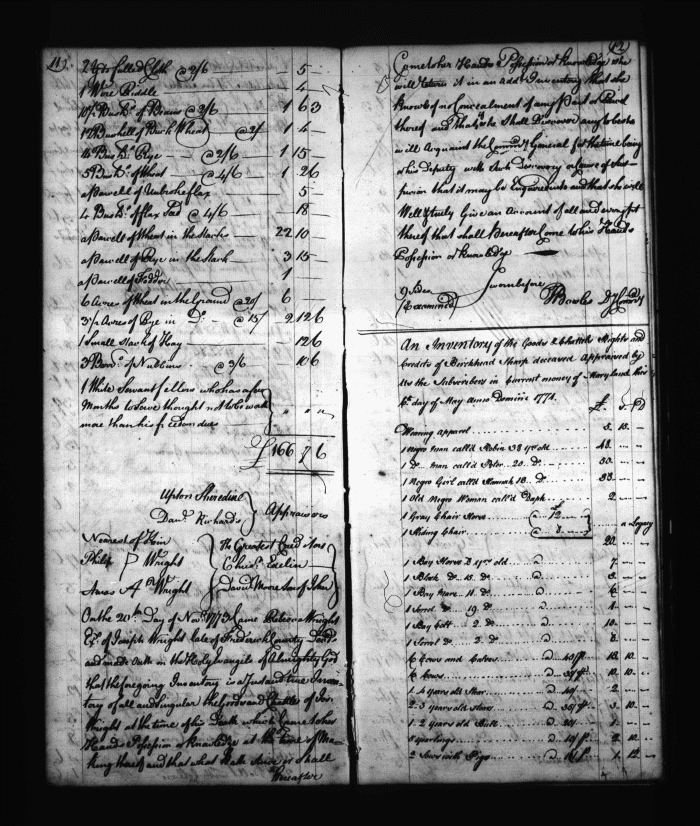 11)
2 Yds fulled Cloth @ 2/6 — 5 —
1 Wire Riddle — 4 —
10½ Bush.s of Beans @ 2/6 1 6 3
12 Bushell of Buck Wheat @ 2/ 1 4 —
14 Bush.s Rye — @ 2/6 1 15 —
5 Bush.s of Wheat — @ 4/6 1 2 6
a Parcell of Unbroke flax — 5 —
4 Bush.s of flax Seed @ 4/6 — 18 —
a Parcell of Wheat in the Stacks — 22 10 —
a Parcell of Rye in the Stack — 3 15 —
a Parcell of Fodder — 1 —
6 Acres of Wheat in the Ground @ 20/ 6 —
3½ Acres of Rye in D.o — @ 15/ 2 12 6
1 Small Stack of Hay — 12 6
3 Barr.s of Nubbins @ 3/6 10 6
1 White Servant fellow who has a few
Months to Serve thought not to be worth
more than his freedom dues " " "
£ 166 7 6
Upton Sheredine
Dan.l Richards } Appraisors
Nearest of Kin
Philip P Wright
Amos A Wright
The Greatest Creditors
Chris.r Edelin
David Moore Son of John
On the 20th Day of Nov.r 1773 Came Rebecca Wright
Ex.x of Joseph Wright late of Frederick County
and made Oath on the Holy Evangels of Almighty God
that the foregoing Inventory is a Just and true Inven-
tory of all and Singular the Goods and Chattles of Jos.
Wright at the time of his Death which Came to her
Hands Possession or Knowledge at the time of Ma-
king thereof and that what hath Since or shall
Hereafter
12)
Come to her Hands Possession or Knowledge she
will return it in an add.l Inventory that she
Knows of no Concealment of any Part or Parcel
thereof and that if she Shall Discover any to be she
will Acquaint the Commry General for the time being
or his deputy with such Discovery or Cause of Sus-
picion that it may be Enquired into and that she will
Well & truly Give an Account of all and every part
thereof that shall Hereafter Come to his Hands
Possession or Knowledge
Sworn before
Examined
T Bowles Dy Commry
An Inventory of the Goods & Chattels Rights and
Credits of Birckhead Sharp deceased Appraised by
Us the Subscribers in Current money of Maryland this
6th day of May Anno Domini 1774.
£ S D
Wearing apparel 5 15 —
1 Negro man call'd Robin 38 yrs old 48 — —
1 D.o man call'd Peter 20 D.o 50 — —
1 Negro Girl call'd Hannah 18 D.o 38 — —
1 Old Negro Woman call'd Daph 2 — —
1 Gray Chair Horse @ 12
1 Riding Chair @ 8 a Legacy
20 — —
1 Bay Horse yrs old 7 — —
1 Black D.o 15 D.o 3 — —
1 Bay Mare 11 D.o 6 — —
1 Sorrel D.o 19 D.o 1 — —
1 Bay Colt 2 D.o 10 — —
1 Sorrel D.o 2 D.o 8 — —
6 Cows and Calves 13 10 —
6 Cows 10 10 —
1 4 years old Steer 2 — —
2 3 years old Steers 35/ 3 10 —
1 2 years old Bull 20/ 1 — —
5 yearlings 10/ 2 10 —
2 Sows with Pigs 16/ 1 12 —